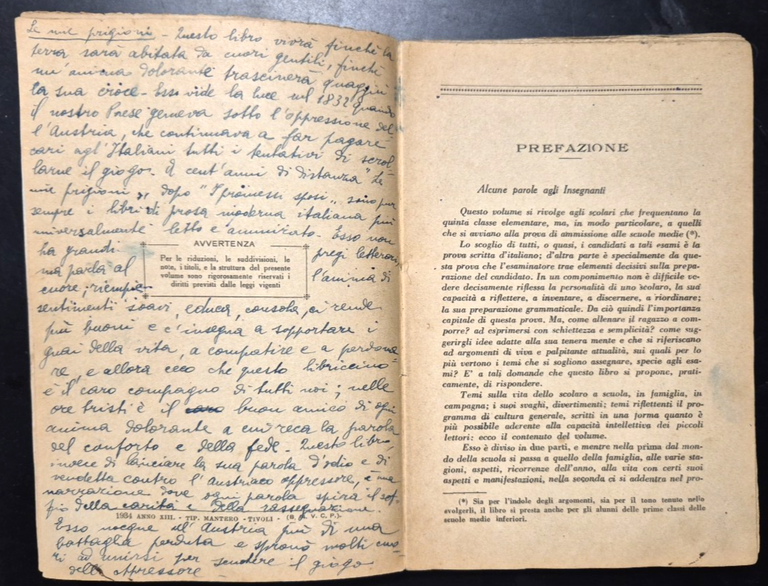 Le mie prigioni - Questo libro vivrà finchè la
terra sarà abitata da cuori gentili, finchè
un'anima dolorante trascinerà quaggiù
la sua croce - Esso vide la luce nel 1832 quando
il nostro Paese gemeva sotto l'oppressione del
l'Austria, che continuava a far pagare
cari agl'Italiani tutti i tentativi di scrol
larne il giogo. A cent'anni di distanza "Le
mie prigioni", dopo "I promessi sposi" sono pur
sempre i libri di prosa moderna italiana più
universalmente letto e ammirato. Esso non
ha grandi pregi letterari
ma parla al l'anima di
cuore; riempie
AVVERTENZA
Per le riduzioni, le suddivisioni, le
note, i titoli, e la struttura del presente
volume sono rigorosamente riservati i
diritti previsti dalle leggi vigenti
sentimenti soavi, educa, consola, ci rende
più buoni e c'insegna a sopportare i
guai della vita, a compatire e a perdona
re e allora ecco che questo libriccino
è il caro compagno di tutti noi; nelle
ore tristi è il caro buon amico di ogni
anima dolorante a cui reca la parola
del conforto e della fede. Questo libro
invece di lanciare la sua parola d'odio e di
vendetta contro l'austriaco oppressore, è una
narrazione dove ogni parola spira il sof
fio della carità e della rassegnazione.
1934 ANNO XIII. - TIP. MANTERO - TIVOLI - (R. S. V. C. P.)
Esso nocque all'Austria più di una
battaglia perduta e spronò molti cuo
ri ad unirsi per scuotere il giogo
dello oppressore
PREFAZIONE
Alcune parole agli Insegnanti
Questo volume si rivolge agli scolari che frequentano la
quinta classe elementare, ma, in modo particolare, a quelli
che si avviano alla prova di ammissione alle scuole medie (*).
Lo scoglio di tutti, o quasi, i candidati a tali esami è la
prova scritta d'italiano; d'altra parte è specialmente da que-
sta prova che l'esaminatore trae elementi decisivi sulla prepara-
zione del candidato. In un componimento non è difficile ve-
dere decisamente riflessa la personalità di uno scolaro, la sua
capacità a riflettere, a inventare, a discernere, a riordinare;
la sua preparazione grammaticale. Da ciò quindi l'importanza
capitale di questa prova. Ma, come allenare il ragazzo a com-
porre? ad esprimersi con schiettezza e semplicità? come sug-
gerirgli idee adatte alla sua tenera mente e che si riferiscano
ad argomenti di viva e palpitante attualità, sui quali per lo
più vertono i temi che si sogliono assegnare, specie agli esa-
mi? E' a tali domande che questo libro si propone, prati-
camente, di rispondere.
Temi sulla vita dello scolaro a scuola, in famiglia, in
campagna; i suoi svaghi, divertimenti; temi riflettenti il pro-
gramma di cultura generale, scritti in una forma quanto è
più possibile aderente alla capacità intellettiva dei piccoli
lettori: ecco il contenuto del volume.
Esso è diviso in due parti, e mentre nella prima dal mon-
do della scuola si passa a quello della famiglia, alle varie sta-
gioni, aspetti, ricorrenze dell'anno, alla vita con certi suoi
aspetti e manifestazioni, nella seconda ci si addentra nel pro-
(*) Sia per l'indole degli argomenti, sia per il tono tenuto nello
svolgerli, il libro si presta anche per gli alunni delle prime classi delle
scuole medie inferiori.